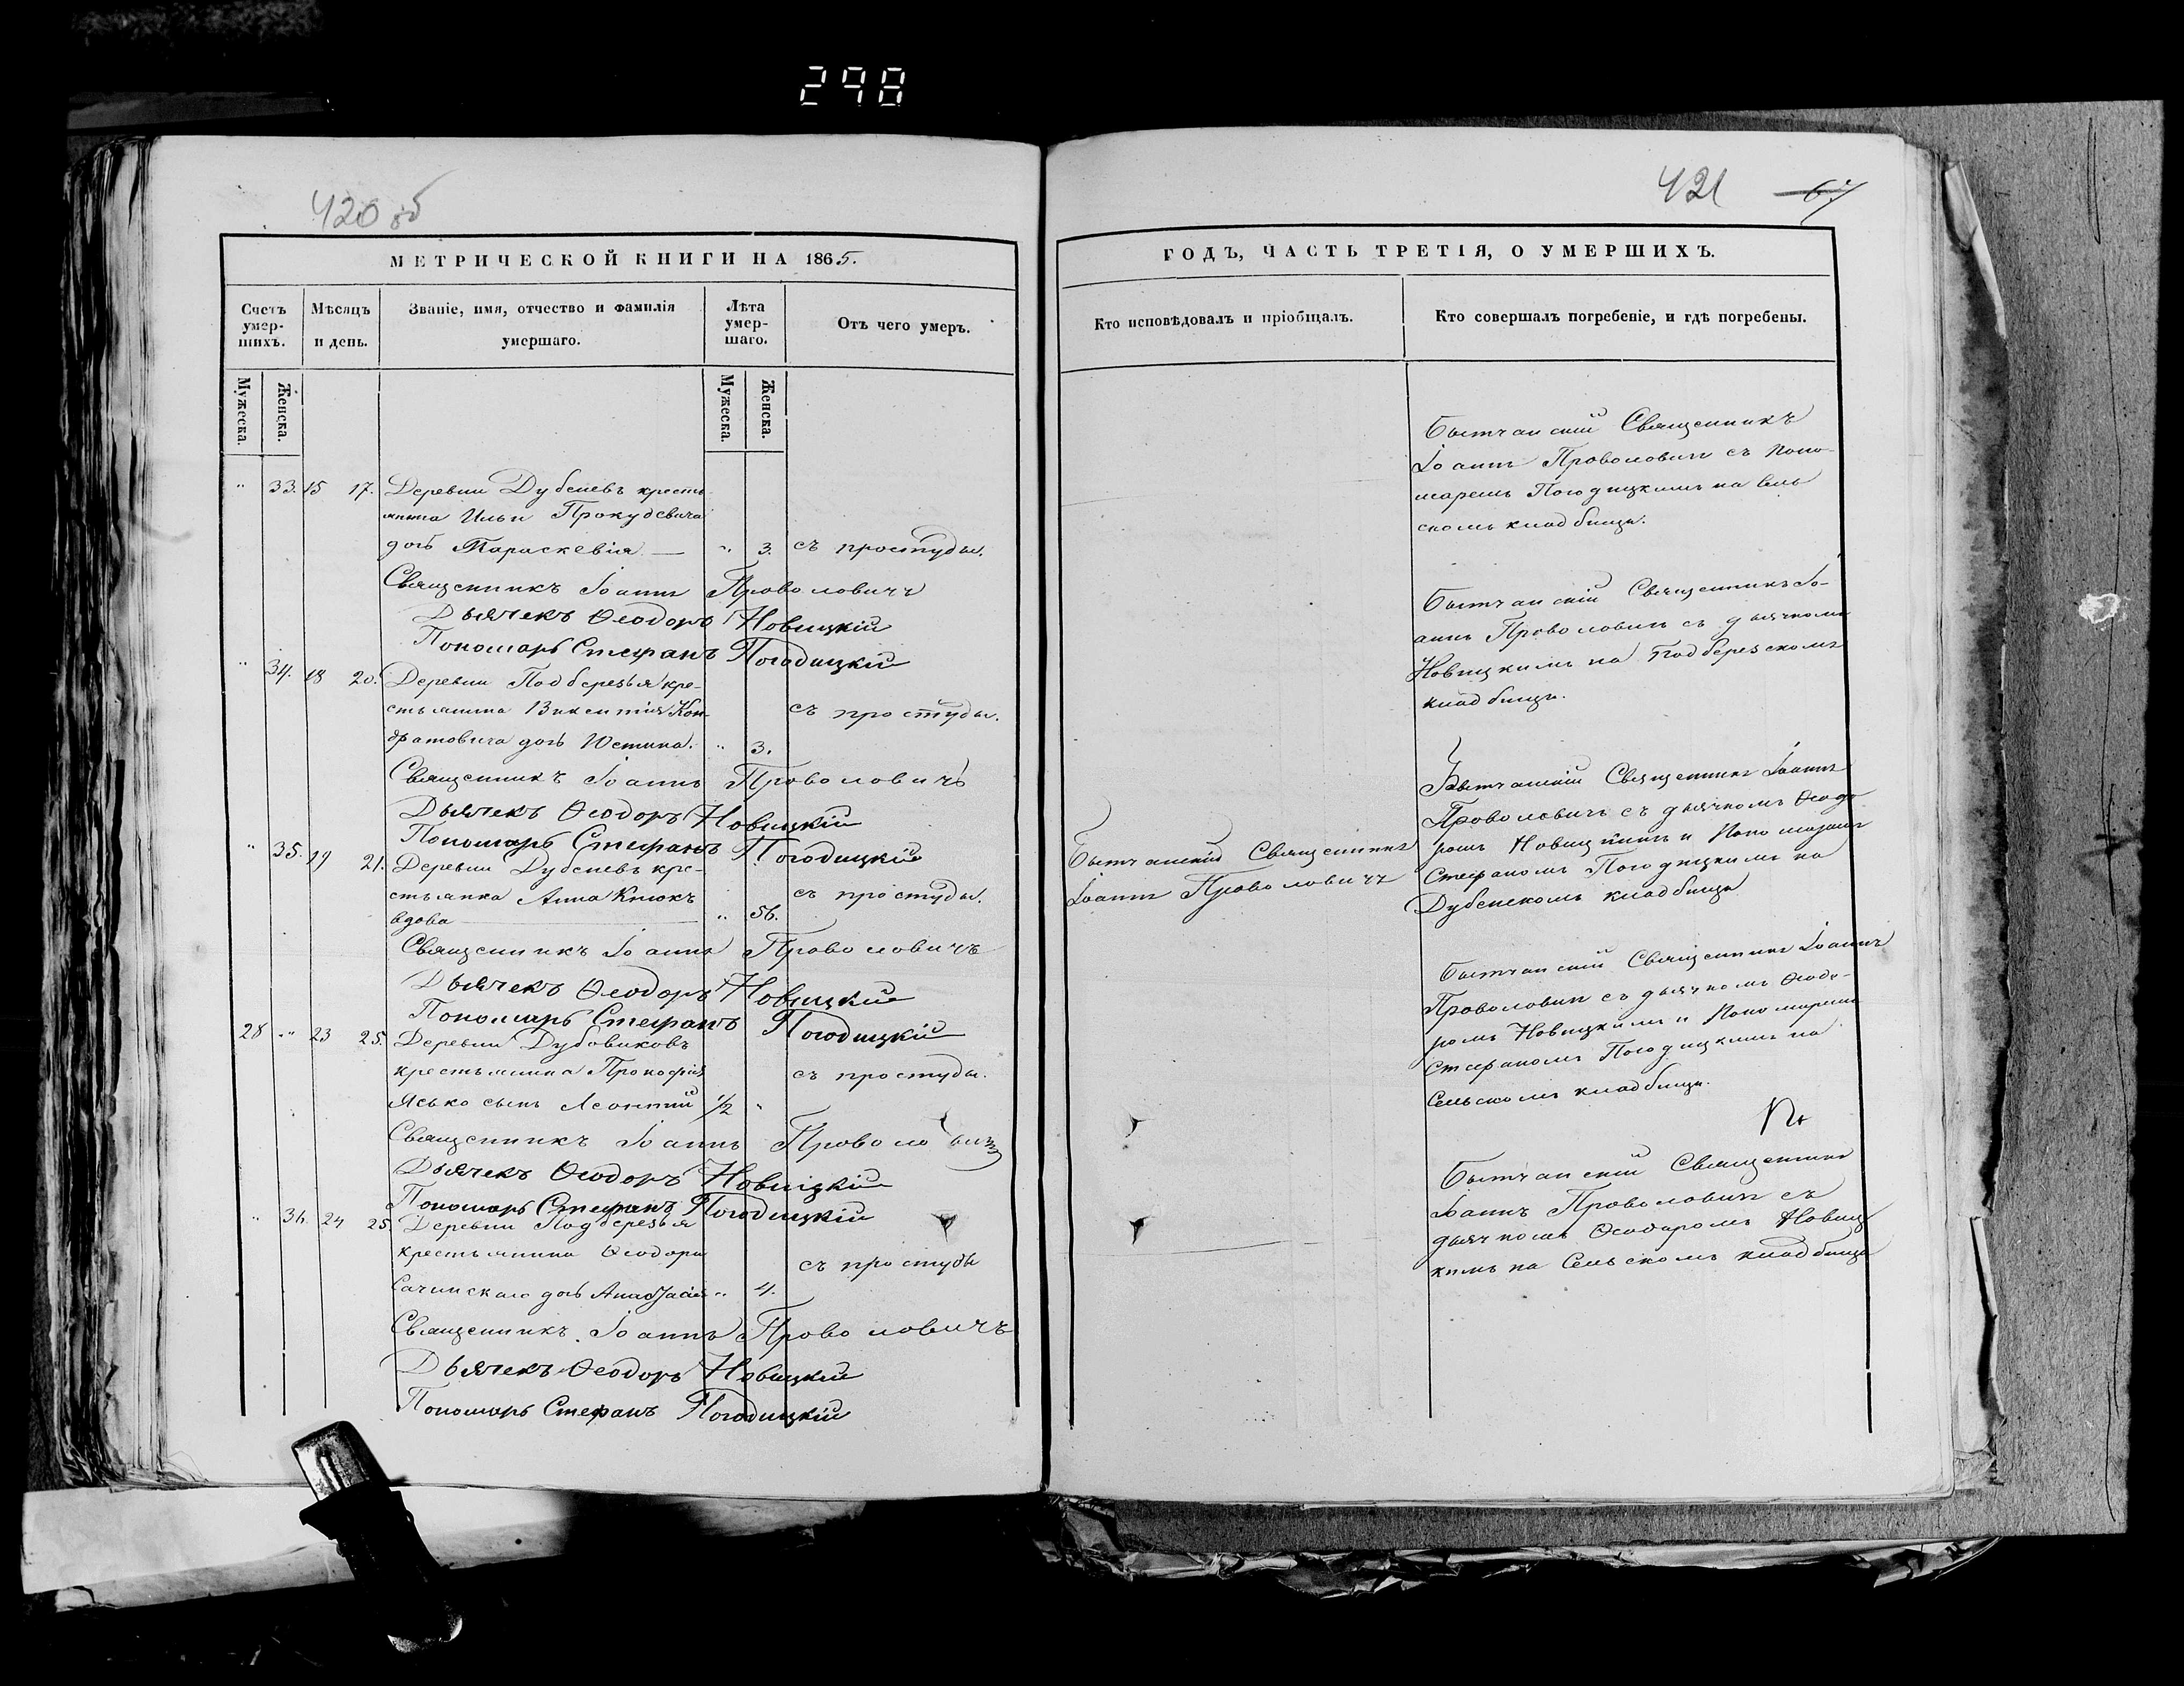 298
420 об
МЕТРИЧЕСКОЙ КНИГИ НА 1865.
Счетъ умер-шихъ.
Мѣсяцъ и день.
Званіе, имя, отчество и фамилія умершаго.
Лѣта умер-шаго.
Отъ чего умеръ.
Мужеска.
Женска.
Мужеска.
Женска.
" 33. 15 17. Деревни Дубеневъ кресть
янина Ильи Прокудевича
дочь Параскевія — " 3. съ простуды.
Священникъ Іоаннъ Проволовичъ
Дьячекъ Ѳеодоръ Новицкій
Пономарь Стефанъ Погодицкій
" 34. 18 20. Деревни Подберезья кре-
стьянина Викентія Кон- съ простуды.
дратовича дочь Юстина. " 3.
Священникъ Іоаннъ Проволовичъ
Дьячекъ Ѳеодоръ Новицкій
Пономарь Стефанъ Погодицкій
" 35. 19 21. Деревни Дубеневъ кре-
стьянка Анна Кнюкъ съ простуды.
вдова " 56.
Священникъ Іоаннъ Проволовичъ
Дьячекъ Ѳеодоръ Новицкій
Пономарь Стефанъ Погодицкій
28 " 23 25. Деревни Дубовиковъ
крестьянина Прокофія съ простуды.
Ясько сынъ Леонтій 1/2 "
Священникъ Іоаннъ Проволовичъ
Дьячекъ Ѳеодоръ Новицкій
Пономарь Стефанъ Погодицкій
" 36. 24 25. Деревни Подберезья
крестьянина Ѳеодора съ простуды
Сачинскаго дочь Анастасія " 4.
Священникъ Іоаннъ Проволовичъ
Дьячекъ Ѳеодоръ Новицкій
Пономарь Стефанъ Погодицкій
421 67
ГОДЪ, ЧАСТЬ ТРЕТІЯ, О УМЕРШИХЪ.
Кто исповѣдовалъ и пріобщалъ.
Кто совершалъ погребеніе, и гдѣ погребены.
Бытчанскій Священникъ
Іоаннъ Проволовичъ съ Поно-
маремъ Погодицкимъ на Сель
скомъ кладбищѣ.
Бытчанскій Священникъ Іо-
аннъ Проволовичъ съ дьячкомъ
Новицкимъ на Подберезскомъ
кладбищѣ.
Бытчанскій Священникъ
Іоаннъ Проволовичъ
Бытчанскій Священникъ Іоаннъ
Проволовичъ съ дьячкомъ Ѳеодо
ромъ Новицкимъ и Пономаремъ
Стефаномъ Погодицкимъ на
Дубенскомъ кладбищѣ
Бытчанскій Священникъ Іоаннъ
Проволовичъ съ дьячкомъ Ѳеодо-
ромъ Новицкимъ и Пономаремъ
Стефаномъ Погодицкимъ на
Сельскомъ кладбищѣ.
Бытчанскій Священникъ
Іоаннъ Проволовичъ съ
дьячкомъ Ѳеодоромъ Новиц
кимъ на Сельскомъ кладбищѣ